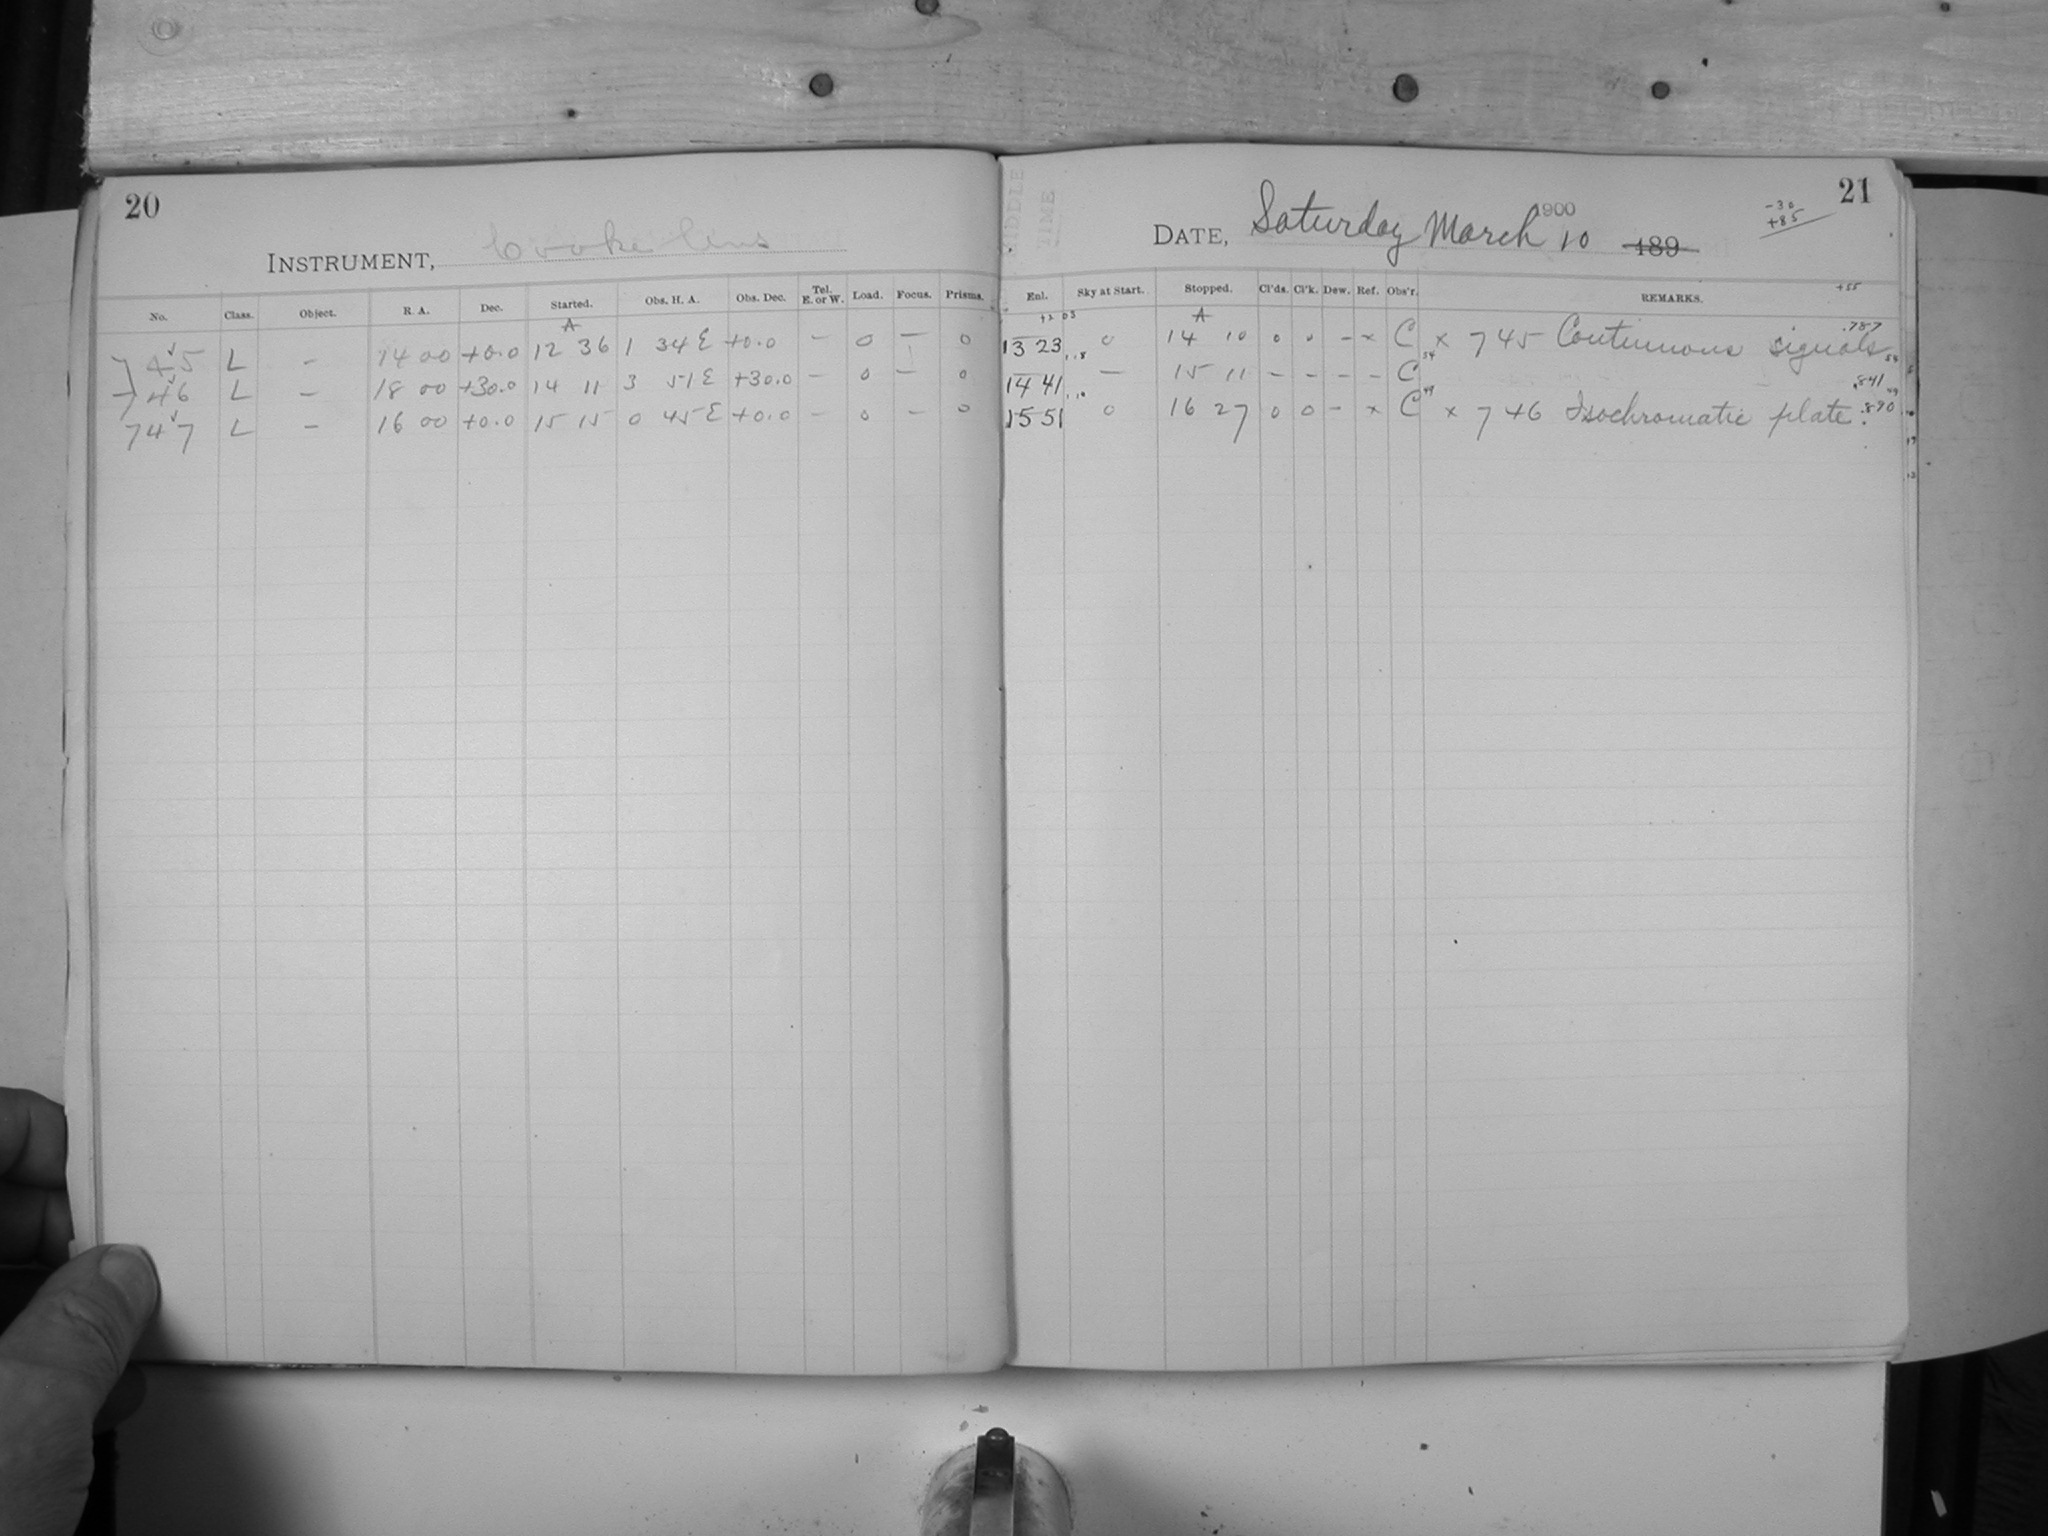 20
INSTRUMENT, Cooke lens
No. Class. Object. R. A. Dec. Started. Obs. H. A. Obs. Dec. Tel. E. or W. Load. Focus. Prisms.
A
745 L – 14 00 +0.0 12 36 1 34 E +0.0 – 0 – 0
746 L – 18 00 +30.0 14 11 3 51 E +30.0 – 0 – 0
747 L – 16 00 +0.0 15 15 0 45 E +0.0 – 0 – 0
MIDDLE
TIME
21
1900
DATE, Saturday March 10 189
-30
+85
+55
Enl. Sky at Start. Stopped. Cl'ds. Cl'k. Dew. Ref. Obs'r. REMARKS.
A
13 23 0 14 10 0 0 – x C x 745 Continuous signals .787
14 41 – 15 11 – – – – C .841
15 51 0 16 27 0 0 – x C x 746 Isochromatic plate. .890